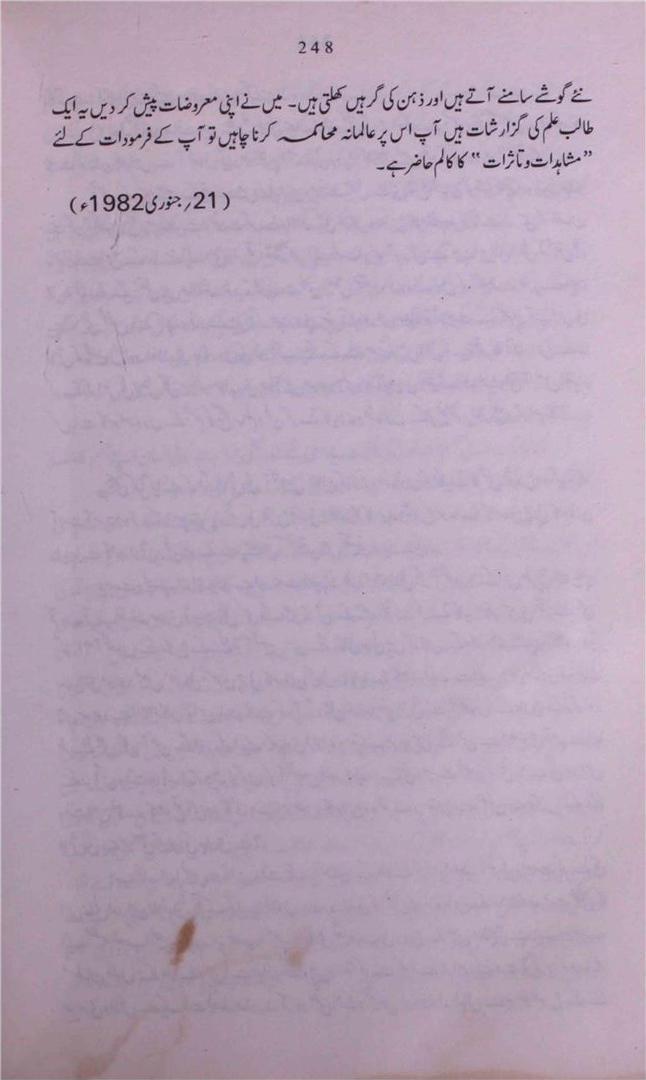 248
نئے گوشے سامنے آتے ہیں اور ذہن کی گرہیں کھلتی ہیں۔ میں نے اپنی معروضات پیش کر دیں یہ ایک
طالب علم کی گزارشات ہیں آپ اس پر عالمانہ محاکمہ کرنا چاہیں تو آپ کے فرمودات کے لئے
”مشاہدات و تاثرات“ کا کالم حاضر ہے۔
(21؍ جنوری 1982ء)